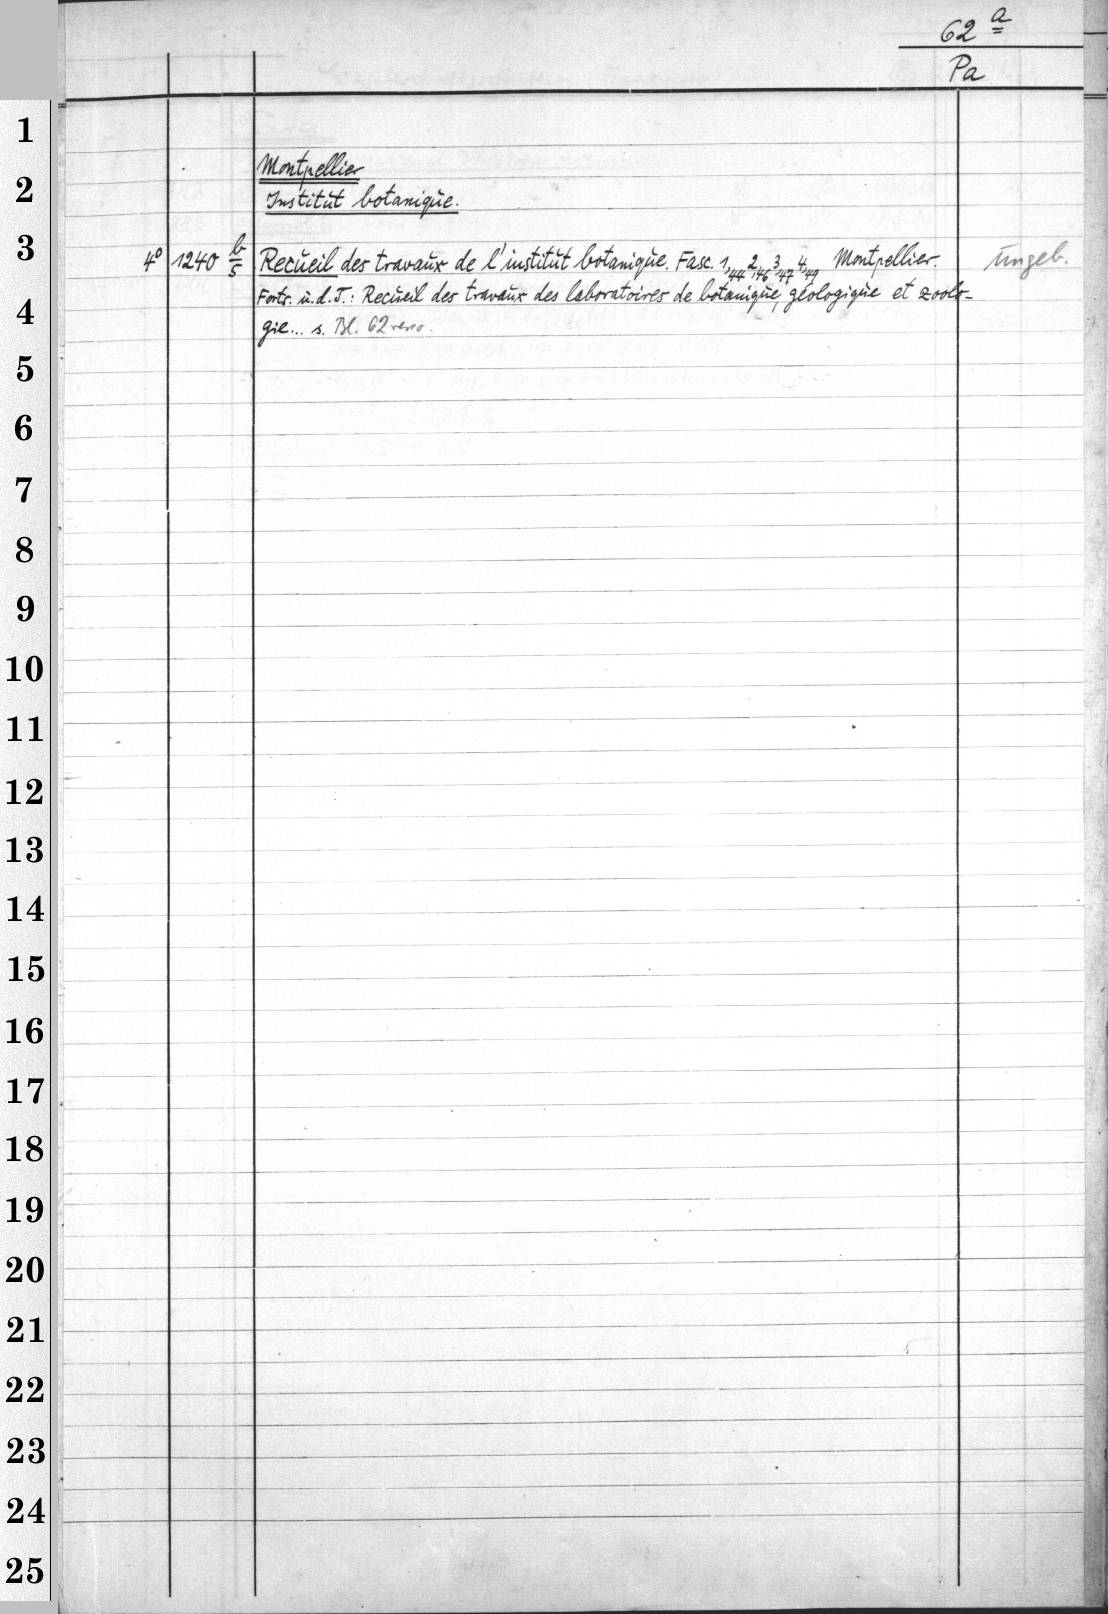 62 a
Pa
1
Montpellier
2
Institut botanique.
3
4° 1240 b/5 Recueil des travaux de l'institut botanique. Fasc. 1,44 2,46 3,47 4,49 Montpellier. Ungeb.
4
Forts. u. d. T.: Recueil des travaux des laboratoires de botanique, géologique et zoolo-
gie... s. Bl. 62 verso.
5
6
7
8
9
10
11
12
13
14
15
16
17
18
19
20
21
22
23
24
25